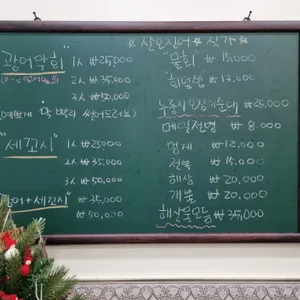 ※ 산오징어 ※ 싯가
"광어막회" 1人 ₩25,000
2人 ₩35,000
3人 ₩50,000
"세꼬시" 1人 ₩25,000
2人 ₩35,000
3人 ₩50,000
광어+세꼬시 ₩35,000
₩50,000
"물회" ₩15,000
회덮밥 ₩13,000
누룽지 오징어순대 ₩25,000
메밀전병 ₩8,000
멍게 ₩12,000
전복 ₩15,000
해삼 ₩20,000
개불 ₩20,000
해산물모듬 ₩35,000